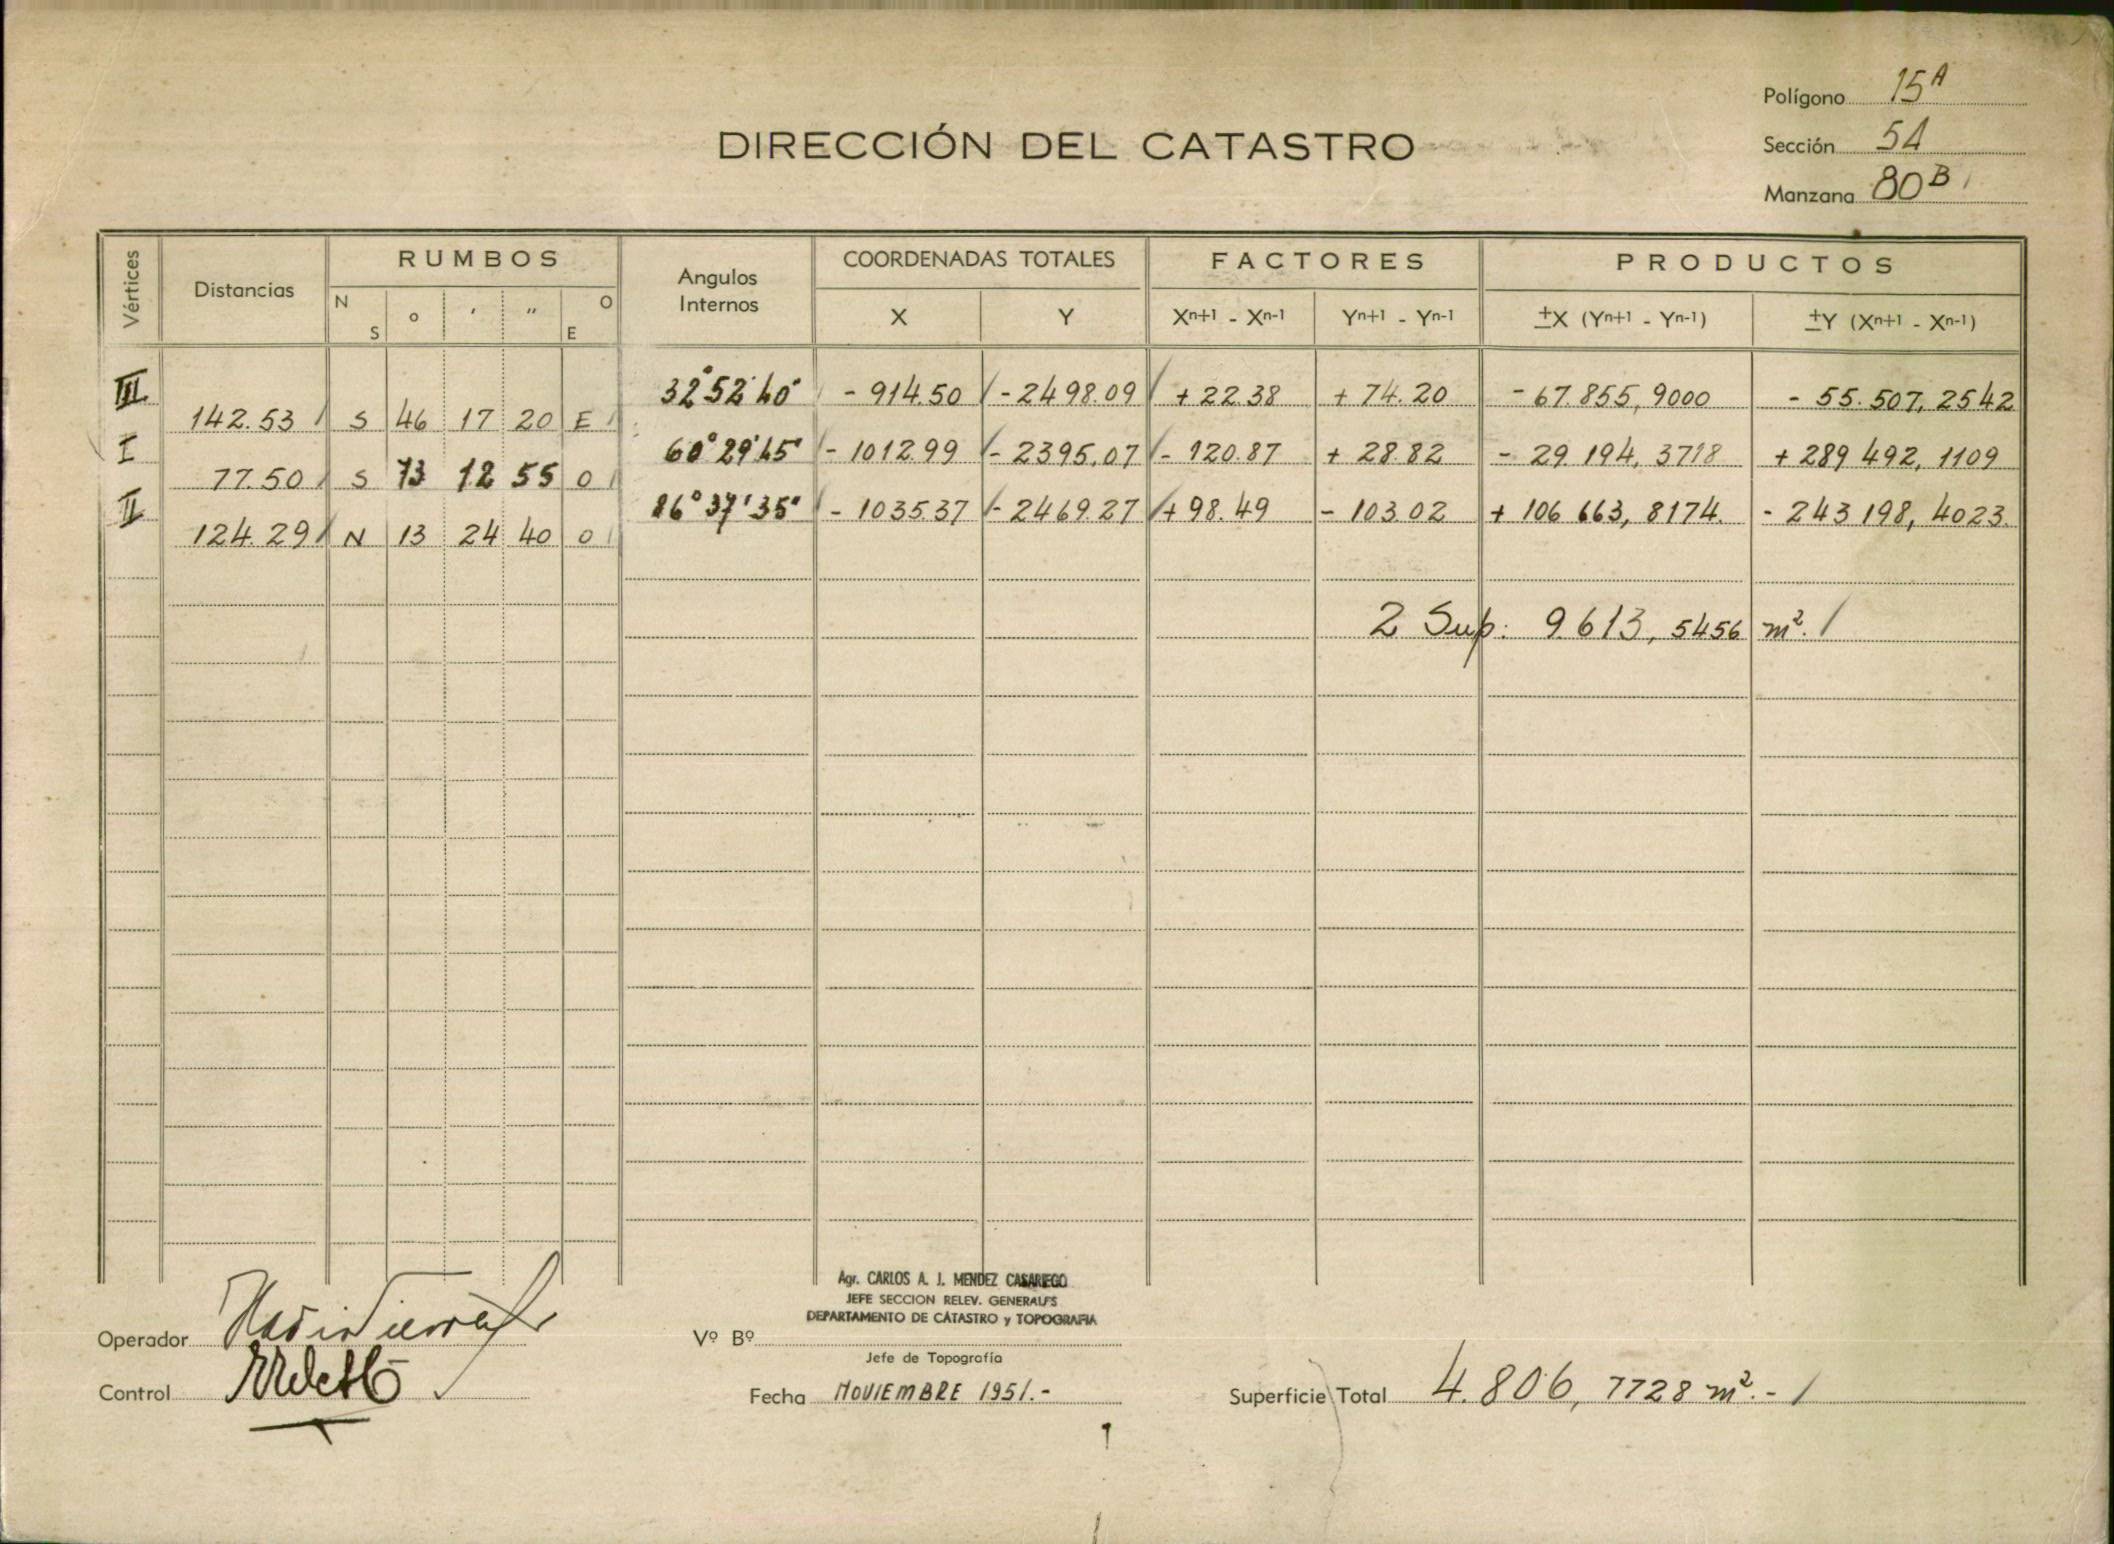 Polígono 15A
DIRECCIÓN DEL CATASTRO
Sección 54
Manzana 80B
Vértices
Distancias
RUMBOS
N S ° ' " O E
Angulos
Internos
COORDENADAS TOTALES
X Y
FACTORES
Xn+1 - Xn-1 Yn+1 - Yn-1
PRODUCTOS
±X (Yn+1 - Yn-1) ±Y (Xn+1 - Xn-1)
III 32°52'40" - 914.50 - 2498.09 + 22.38 + 74.20 - 67.855,9000 - 55.507,2542
142.53 S 46 17 20 E
I 60°29'45" - 1012.99 - 2395.07 - 120.87 + 28.82 - 29 194,3718 + 289 492,1109
77.50 S 73 12 55 O
II 86°37'35" - 1035.37 - 2469.27 + 98.49 - 103.02 + 106 663,8174. - 243 198,4023.
124.29 N 13 24 40 O
2 Sup: 9613,5456 m².
Agr. CARLOS A. J. MENDEZ CASARIEGO
JEFE SECCION RELEV. GENERALES
DEPARTAMENTO DE CATASTRO y TOPOGRAFIA
Operador
Vº Bº
Jefe de Topografía
Control
Fecha NOVIEMBRE 1951.-
Superficie Total 4.806,7728 m².-